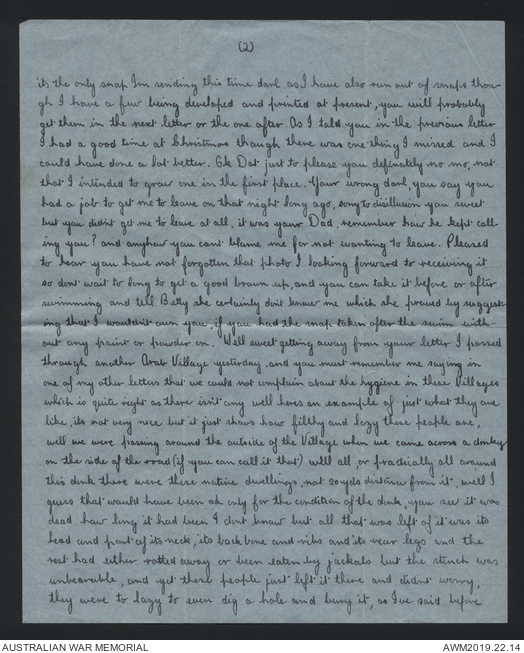 (2)
its the only snap Im sending this time darl as I have also run out of snaps thou-
gh I have a few being developed and printed at present, you will probably
get them in the next letter or the one after As I told you in the previous letter
I had a good time at Christmas though there was one thing I missed and I
could have done a lot better. Ok Dat just to please you definately no mo, not
that I intended to grow one in the first place. Your wrong darl, you say you
had a job to get me to leave on that night long ago, sorry to disillusion you sweet
but you didnt get me to leave at all, it was your Dad, remember how he kept call-
ing you? and anyhow you cant blame me for not wanting to leave. Pleased
to hear you have not forgotten that photo I looking forward to receiving it
so dont wait to long to get a good brown up, and you can take it before or after
swimming and tell Betty she certainly dont know me which she proved by suggest-
ing that I wouldnt own you, if you had the snap taken after the swim with-
out any paint or powder on. Well sweet getting away from your letter I passed
through another Arab Village yesterday, and you must remember me saying in
one of my other letters that we could not complain about the hygiene in these Villages
which is quite right as there isn't any well heres an example of just what they are
like, its not very nice but it just shows how filthy and lazy these people are,
well we were passing around the outside of the Village when we came across a donkey
on the side of the road (if you can call it that) well all, or practically all around
this donk there were these native dwellings, not 20 yds distance from it, well I
guess that would have been ok only for the condition of the donk, you see it was
dead how long it had been I dont know but all that was left of it was its
head and part of its neck, its back bone and ribs and its rear legs and the
rest had either rotted away or been eaten by jackals but the stench was
unbearable, and yet these people just left it there and didnt worry,
they were to lazy to even dig a hole and bury it, as I've said before
AUSTRALIAN WAR MEMORIAL
AWM2019.22.14